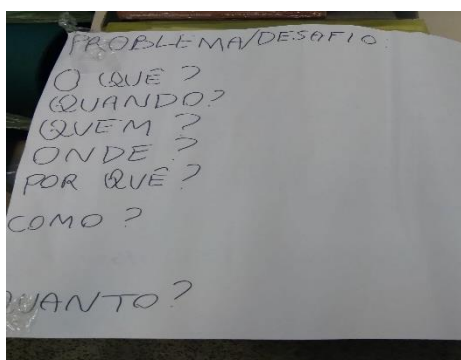 PROBLEMA/DESAFIO:
O QUÊ?
QUANDO?
QUEM?
ONDE?
POR QUÊ?
COMO?
QUANTO?